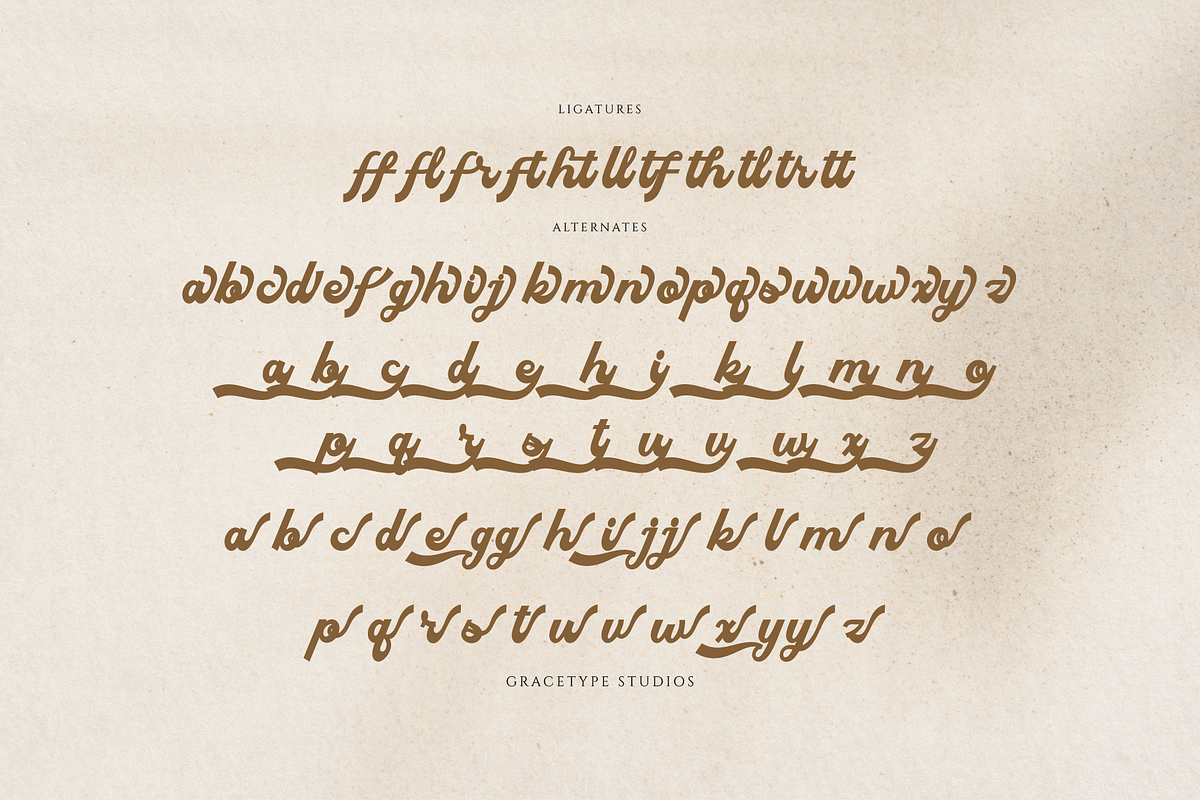 LIGATURES
ff fl fr ft ht ll tf th tl tr tt
ALTERNATES
abcdefghijkmnopqsuvwxyz
a b c d e h i k l m n o
p q r s t u v w x z
a b c d e g g h i j j k l m n o
p q r s t u v w x y y z
GRACETYPE STUDIOS